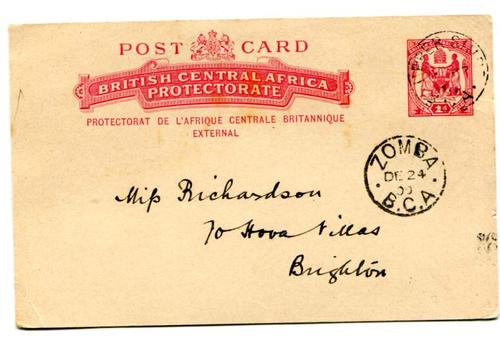 POST CARD
BRITISH CENTRAL AFRICA
PROTECTORATE
PROTECTORAT DE L'AFRIQUE CENTRALE BRITANNIQUE
EXTERNAL
ZOMBA
DE 24
00
B.C.A
Miss Richardson
70 Hova Villas
Brighton